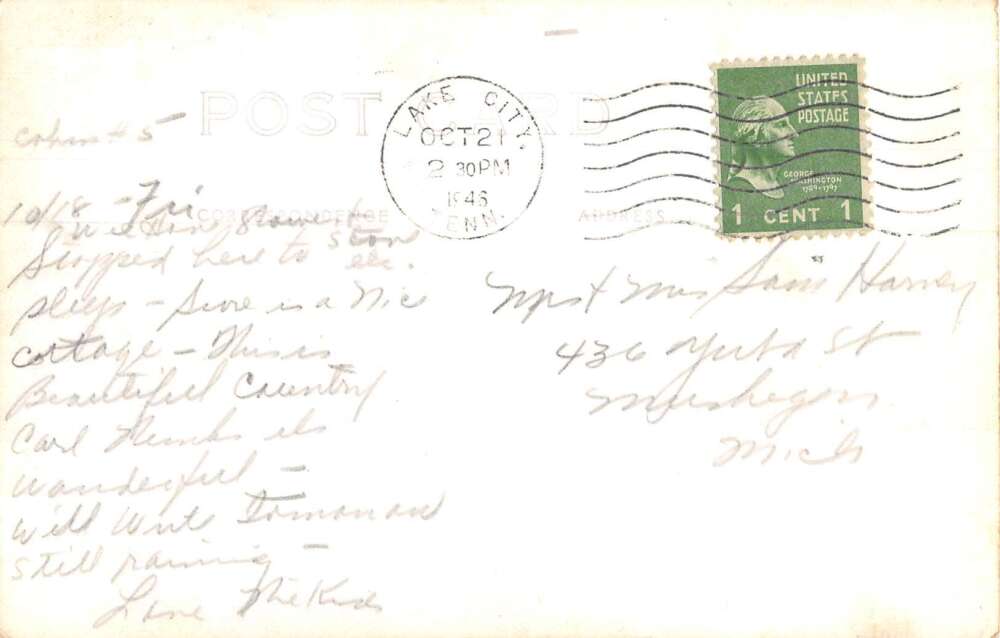 POST CARD
LAKE CITY,
OCT 21
2 30 PM
1946
TENN.
UNITED
STATES
POSTAGE
GEORGE
WASHINGTON
1789-1797
1 CENT 1
CORRESPONDENCE
ADDRESS
5
10/18 - Fri
Stopped here to
sleep - is a Nice
cottage - This is
Beautiful Country
Carl thinks its
wonderful -
Will write Tomorrow
still raining -
Love The Kids
Mr & Mrs Sam Harvey
436 Yuba St
Muskegon
Mich